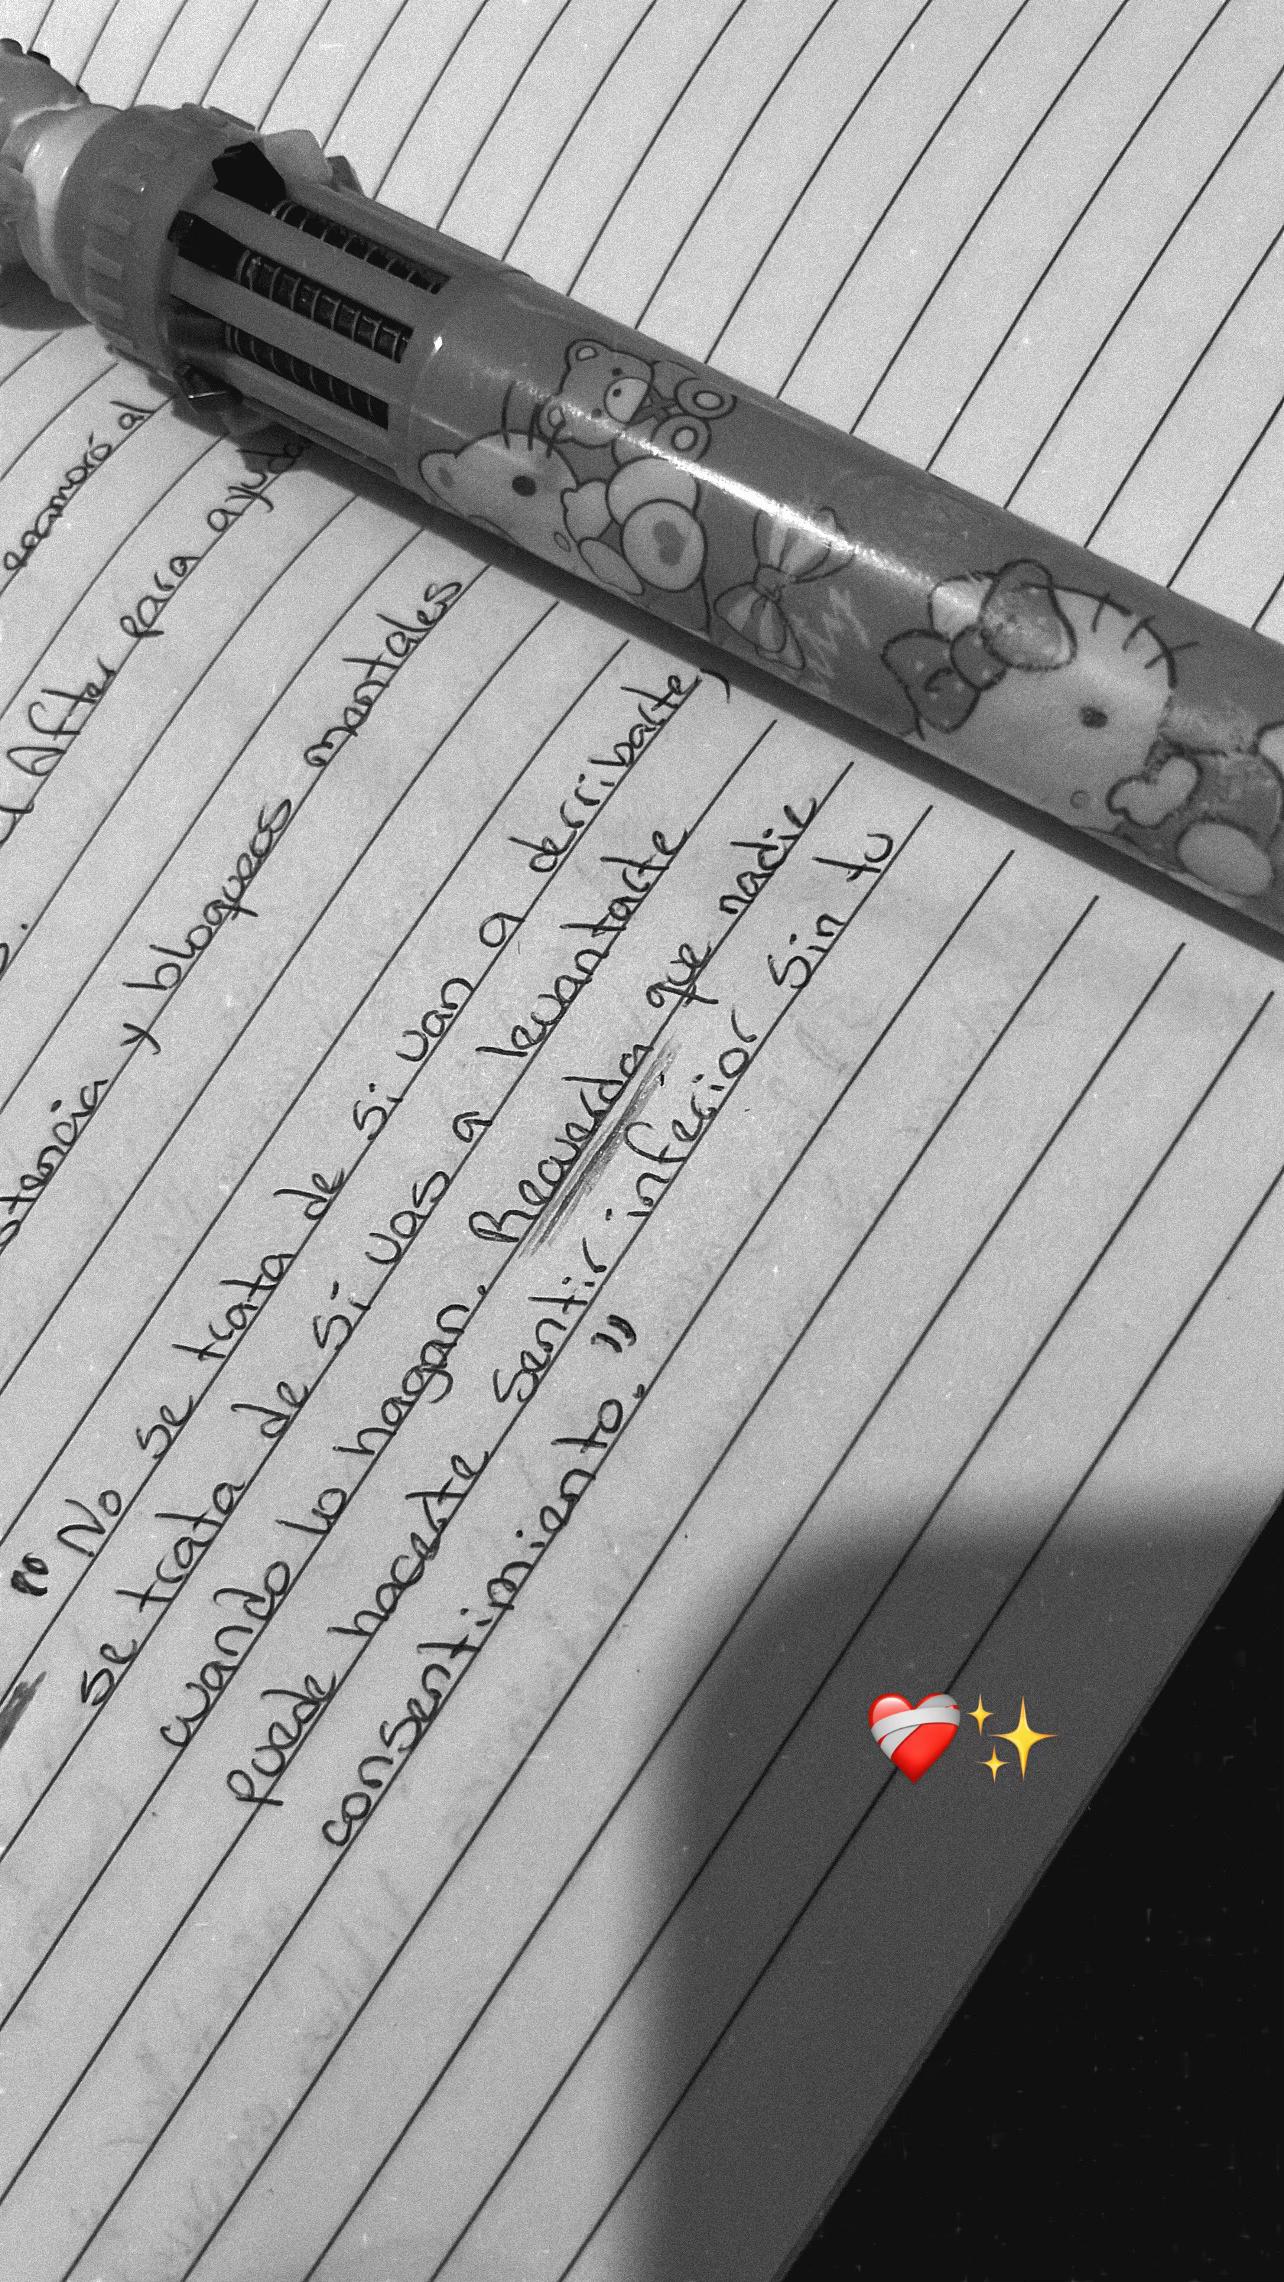 enamoró al
After para ayuda
y bloqueos mentales
"No se trata de si van a derribarte,
se trata de si vas a levantarte
cuando lo hagan. Recuerda que nadie
Puede hacerte sentir inferior sin tu
consentimiento."